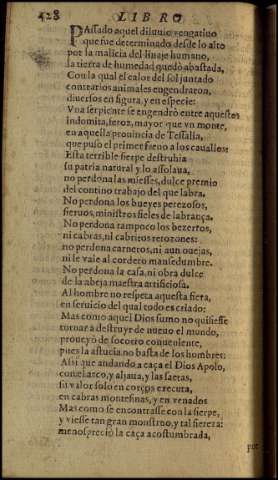 428 LIBRO
PAssado aquel diluuio vengatiuo
que fue determinado desde lo alto
por la malicia del linaje humano,
la tierra de humedad quedò abastada,
Con la qual el calor del sol juntado
contrarios animales engendraron,
diuersos en figura, y en especie:
Vna serpiente se engendrò entre aquestos
indomita, feroz, mayor que vn monte,
en aquella prouincia de Tessalia,
que puso el primer freno a los cauallos:
Esta terrible sierpe destruhia
su patria natural y lo assolaua,
no perdona las miesses, dulce premio
del contino trabajo del que labra.
No perdona los bueyes perezosos,
sieruos, ministros fieles de labrança,
No perdona tampoco los bezerros,
ni cabras, ni cabritos retozones:
no perdona carneros, ni aun ouejas,
ni le vale al cordero mansedumbre.
No perdona la casa, ni obra dulce
de la abeja maestra artificiosa.
Al hombre no respeta aquesta fiera,
en seruicio del qual todo es criado:
Mas como aquel Dios sumo no quisiesse
tornar a destruyr de nueuo el mundo,
proueyò de socorro conueniente,
pues la astucia no basta de los hombres:
Assi que andando a caça el Dios Apolo,
con el arco, y aljaua, y las saetas,
su valor solo en corços executa,
en cabras montesinas, y en venados
Mas como se encontrasse con la sierpe,
y viesse tan gran monstruo, y tal fiereza:
menospreciò la caça acostumbrada,
por